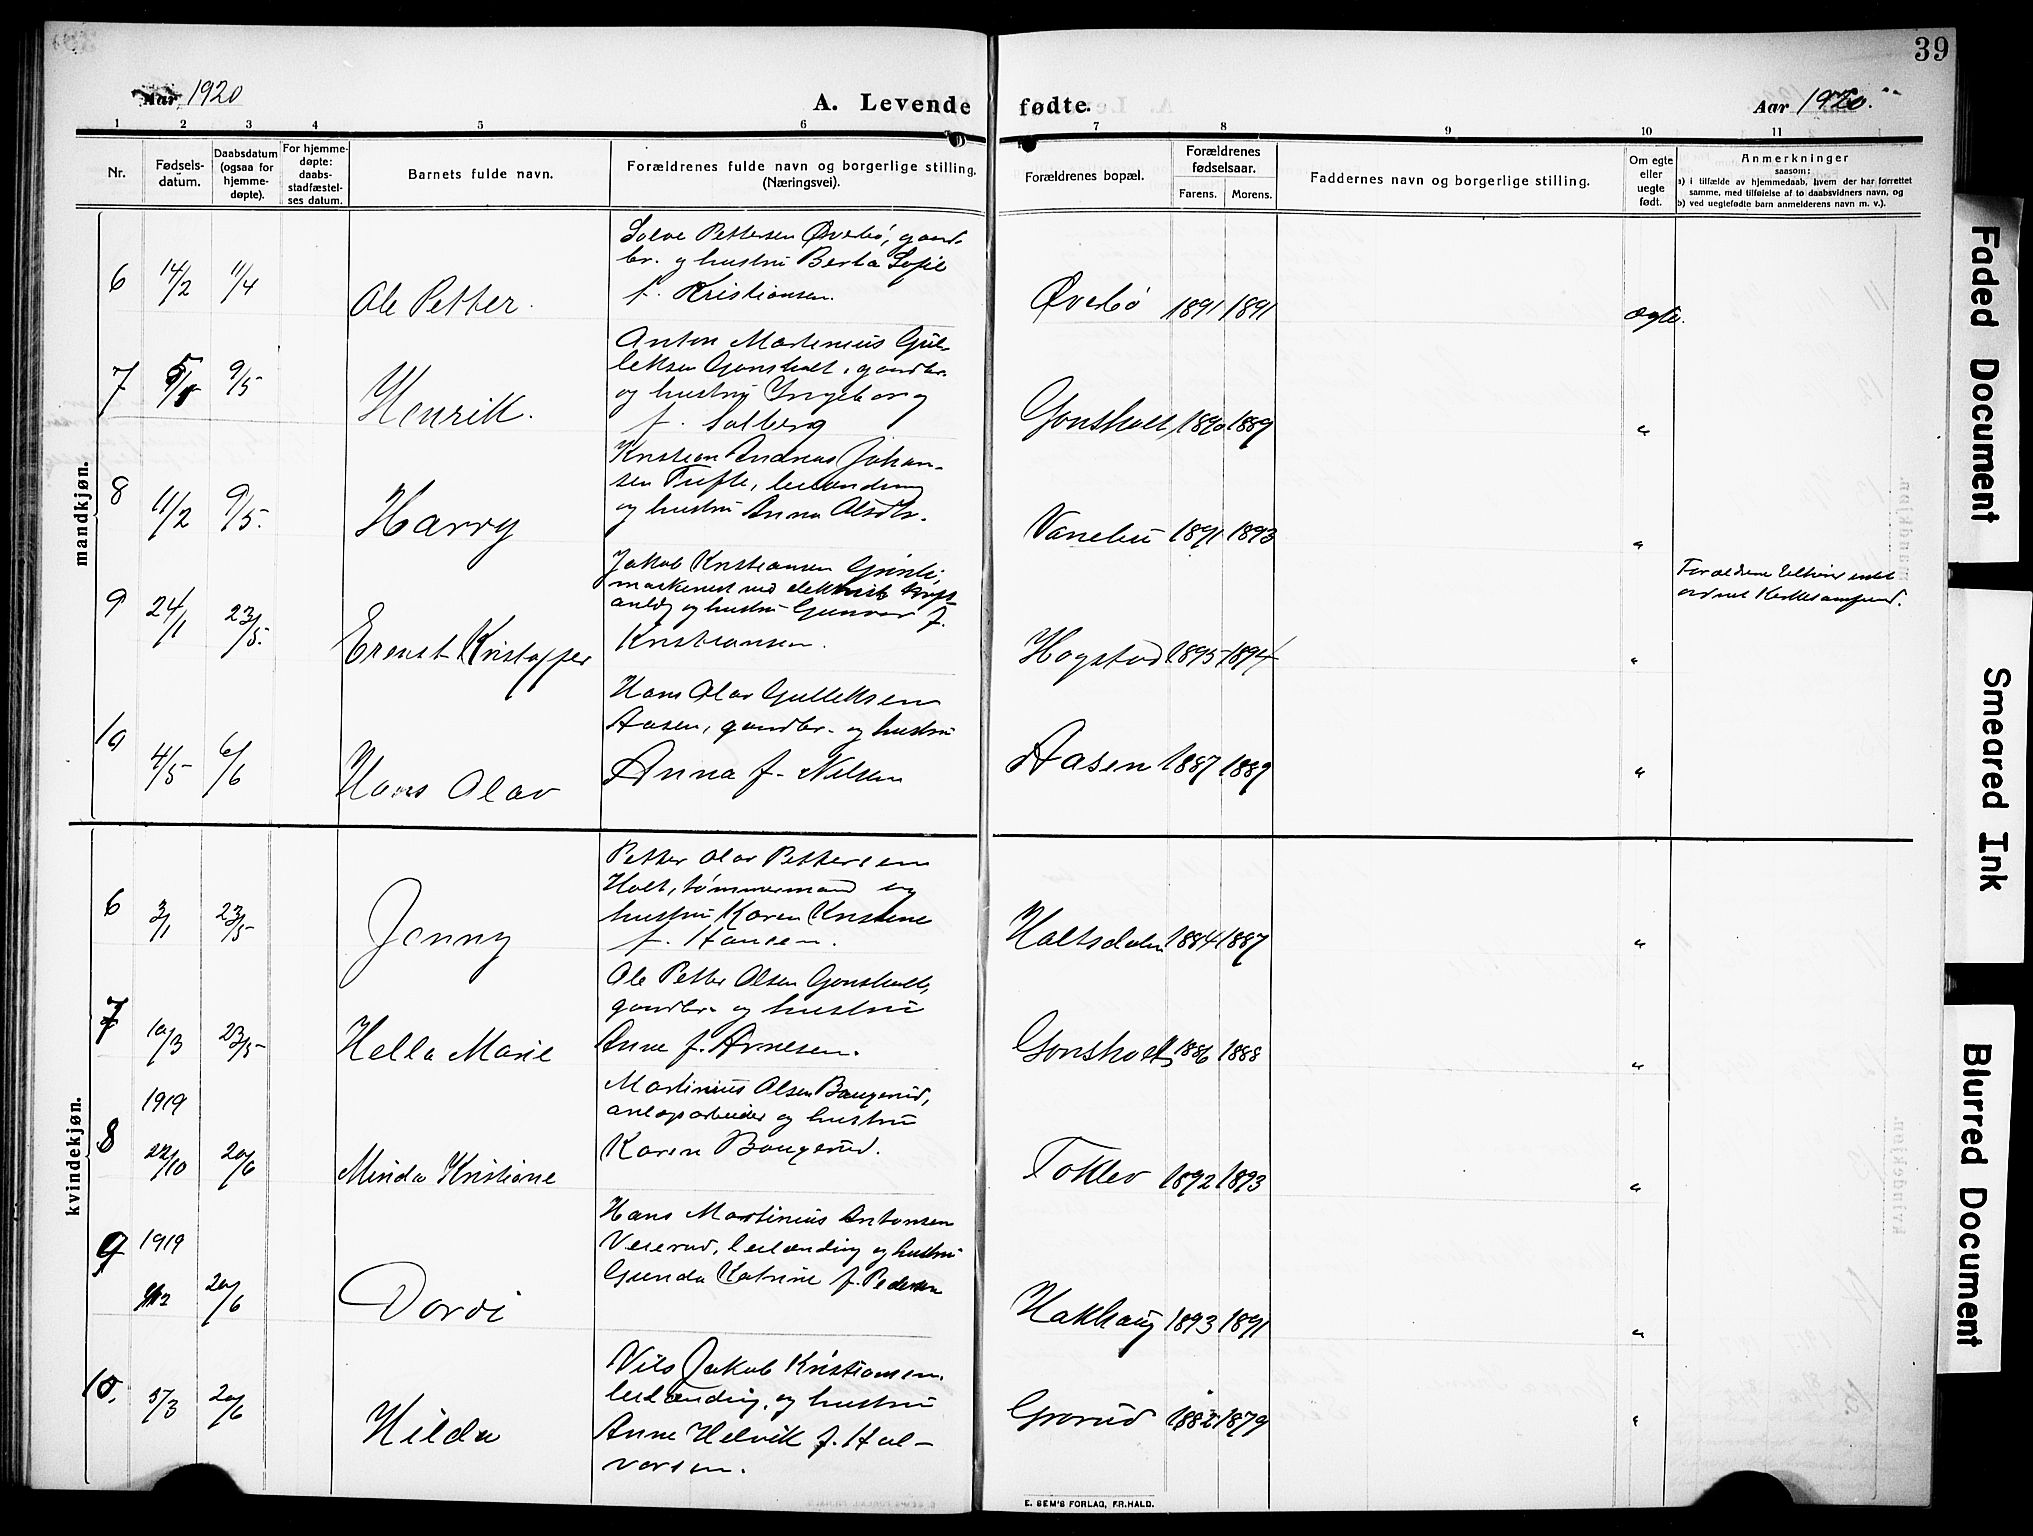 39
Aar 1920
A. Levende fødte.
Aar 1920.
1 2 3 4 5 6 7 8 9 10 11
Nr.
Fødsels-
datum.
Daabsdatum
(ogsaa for
hjemme-
døpte).
For hjemme-
døpte:
daabs-
stadfæstel-
ses datum.
Barnets fulde navn.
Forældrenes fulde navn og borgerlige stilling.
(Næringsvei).
Forældrenes bopæl.
Forældrenes
fødselsaar.
Farens. Morens.
Faddernes navn og borgerlige stilling.
Om egte
eller
uegte
født.
Anmerkninger
saasom:
a) i tilfælde av hjemmedaab, hvem der har forrettet
samme, med tilføielse af to daabsvidners navn, og
b) ved uegtefødte barn anmelderens navn m. v.).
mandkjøn.
Solve Pettersen Øvebö, gaard-
br. og hustru Berta Sofie
f. Kristiansen.
6 14/2 11/4 Ole Petter. Øvebö 1891 1891 ægte.
Anton Martinius Gul-
leksen Gonsholt, gaardbr.
og hustru Ingeborg
f. Solberg
7 9/5 Henrik. Gonsholt 1890 1889 "
Kristian Andreas Johan-
sen Tufte, leilænding
og hustru Anna Olsdtr.
8 11/2 9/5. Harry Vanebu 1891 1893 "
Jakob Kristiansen
maskinist ved elektrisk kraft-
anlæg og hustru Gunvor f.
Kristiansen.
9 24/1 23/5. Ernst Kristoffer Hogstad 1895 1894 "
Forældrene tilhører
ordnet Kirkesamfund.
Hans Olav Gulleksen
Aasen, gaardbr. og hustru
Anna f. Nilsen
10 4/5 6/6 Hans Olav Aasen 1887 1889 "
kvindekjøn.
Petter Olav Pettersen
Holt, tømmermand og
hustru Karen Kristine
f. Hansen.
6 3/1 23/5 Jenny Holtsdalen 1884 1887 "
Ole Petter Olsen Gonsholt,
gaardbr. og hustru
Anne f. Arnesen.
7 10/3 23/5 Hella Marie Gonsholt 1886 1888 "
Martinius Olsen Baugerud,
anlægsarbeider og hustru
Karen Baugerud.
8 1919
22/10 20/6 Minda Kristiane Toklev 1892 1893 "
Hans Martinius Antonsen
leilænding og hustru
Gunda Katrine f. Pedersen
9 1919
20/6 Dordi Hakhaug 1893 1891 "
Nils Jakob Kristiansen.
leilænding, og hustru
Anne Helvik f. Hal-
vorsen.
10. 5/3 20/6 Hilda Grorud 1882 1879 "
E. SEM'S FORLAG, FR.HALD.
Faded Document
Smeared Ink
Blurred Document